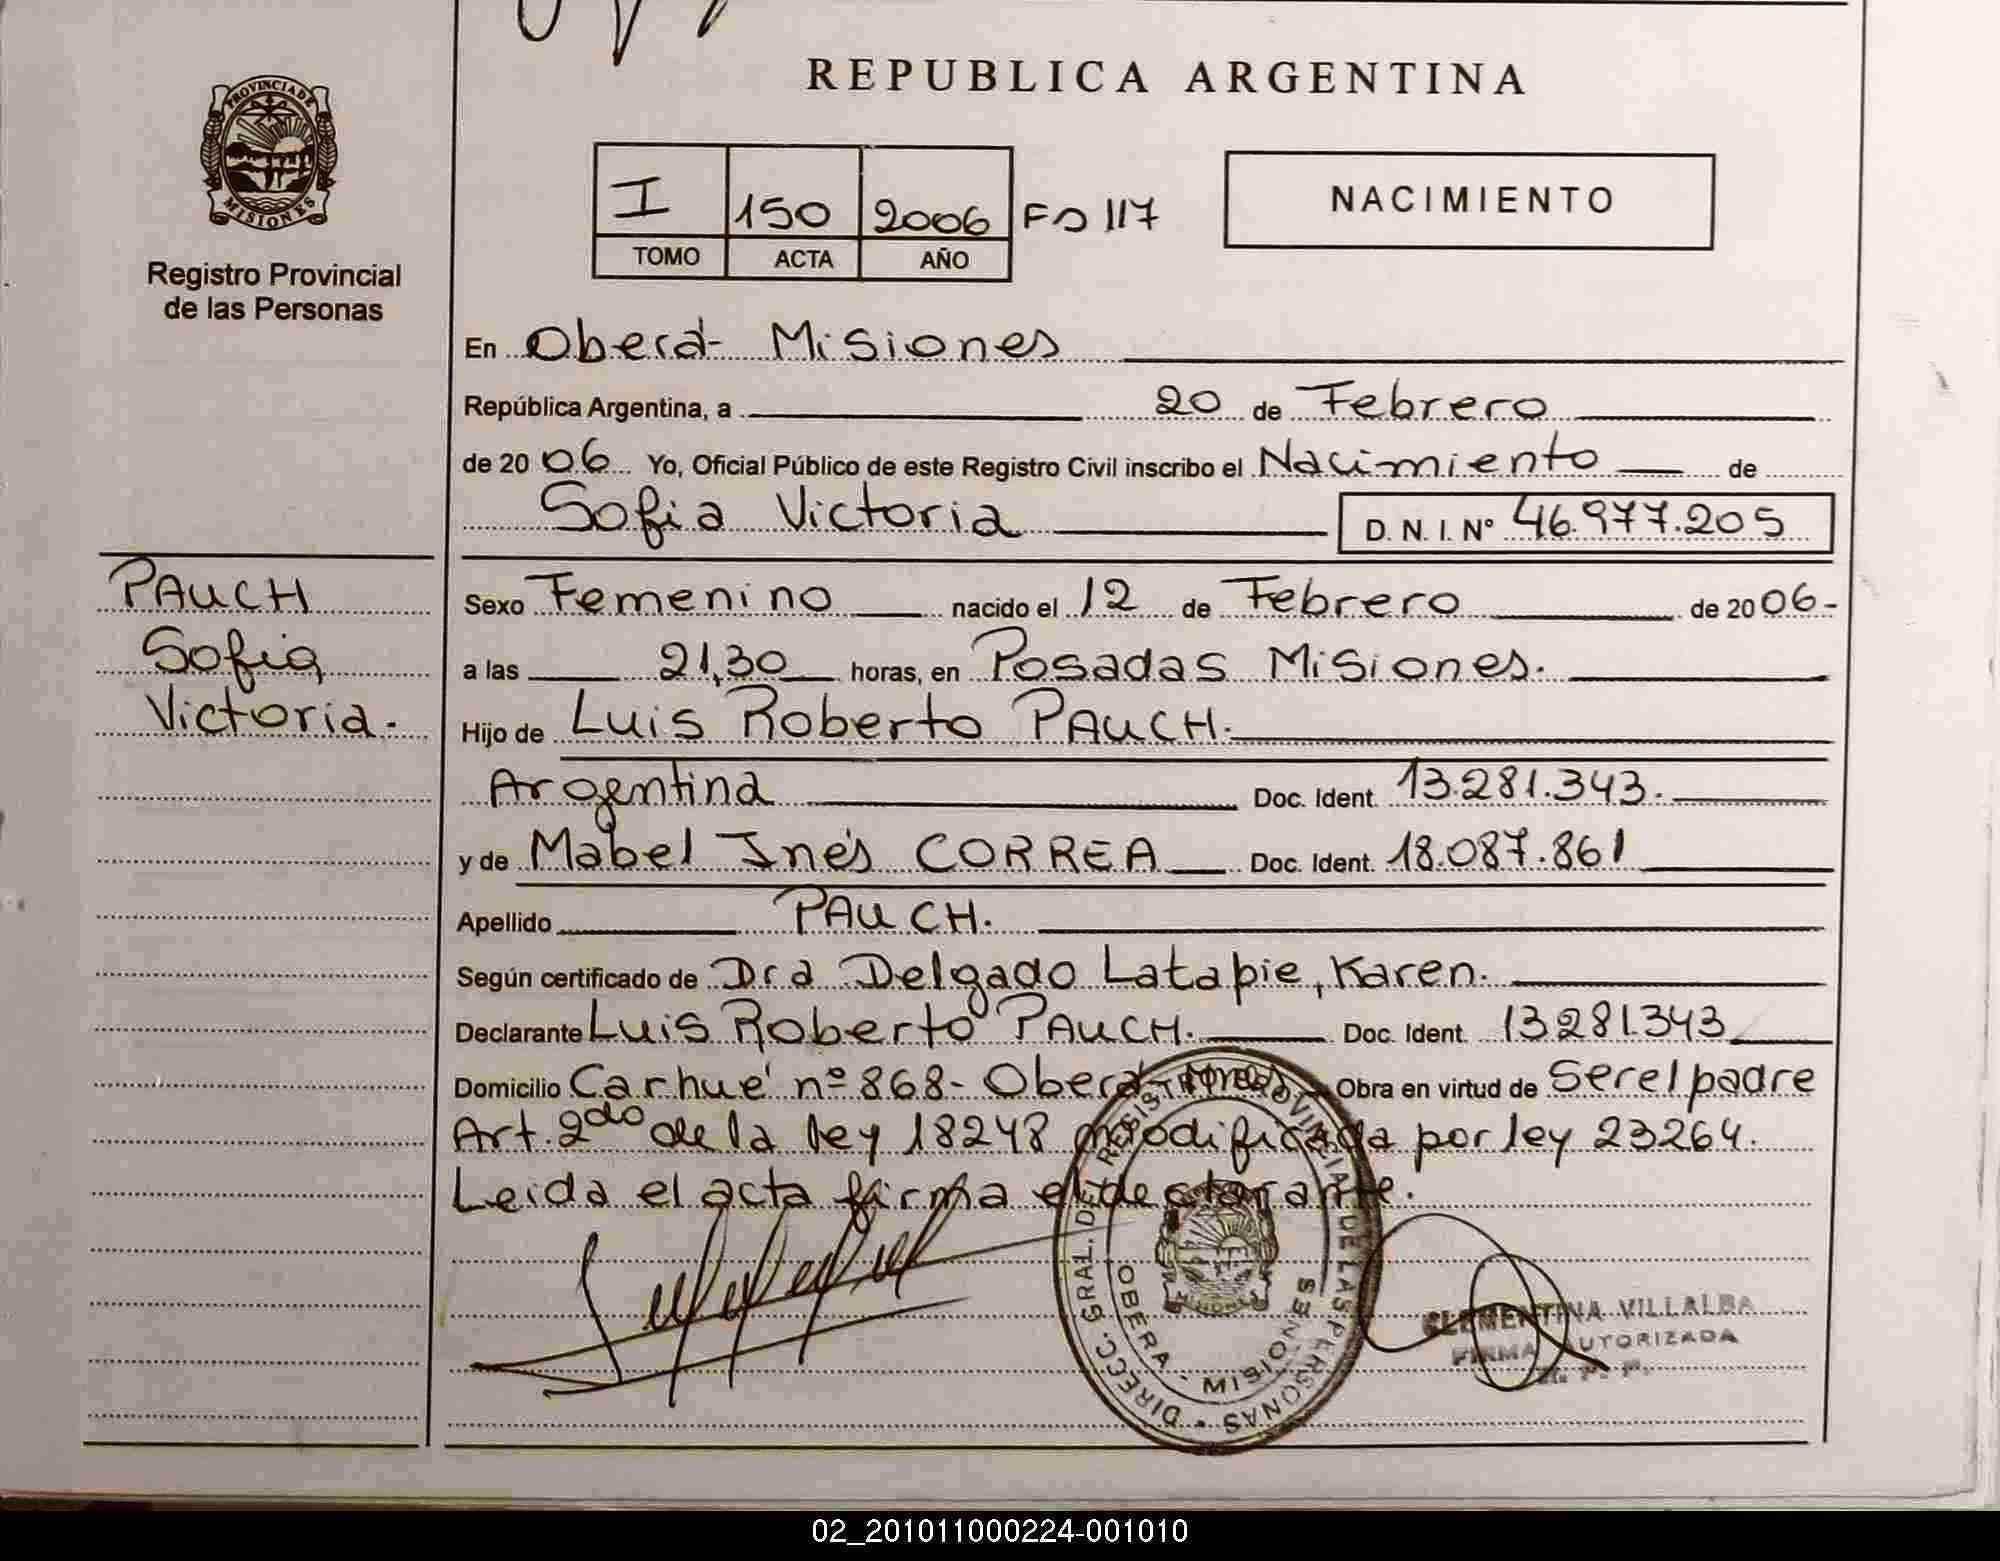 REPUBLICA ARGENTINA
PROVINCIA DE
MISIONES
Registro Provincial
de las Personas
I 150 2006 Fº 117
TOMO ACTA AÑO
NACIMIENTO
En Oberá- Misiones
República Argentina, a 20 de Febrero
de 20 06 Yo, Oficial Público de este Registro Civil inscribo el Nacimiento de
Sofia Victoria D. N. I. Nº 46.977.205
PAUCH
Sofia
Victoria.-
Sexo Femenino nacido el 12 de Febrero de 20 06-
a las 21,30 horas, en Posadas Misiones.
Hijo de Luis Roberto PAUCH.
Argentina Doc. Ident. 13.281.343.
y de Mabel Inés CORREA Doc. Ident. 18.087.861
Apellido PAUCH.
Según certificado de Dra Delgado Latapie, Karen.
Declarante Luis Roberto PAUCH. Doc. Ident. 13281.343
Domicilio Carhué nº 868- Oberá- Mnes Obra en virtud de Ser el padre
Art. 2do de la ley 18248 modificada por ley 23264.
Leida el acta firma el declarante.
DIRECC. GRAL. DEL REGISTRO PROVINCIAL DE LAS PERSONAS
OBERA - MISIONES
MISIONES
CLEMENTINA VILLALBA
FIRMA AUTORIZADA
R. P. P.
02_201011000224-001010